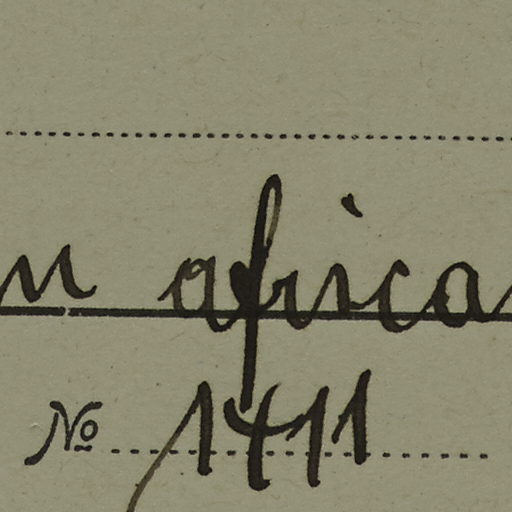 africa
№ 1411